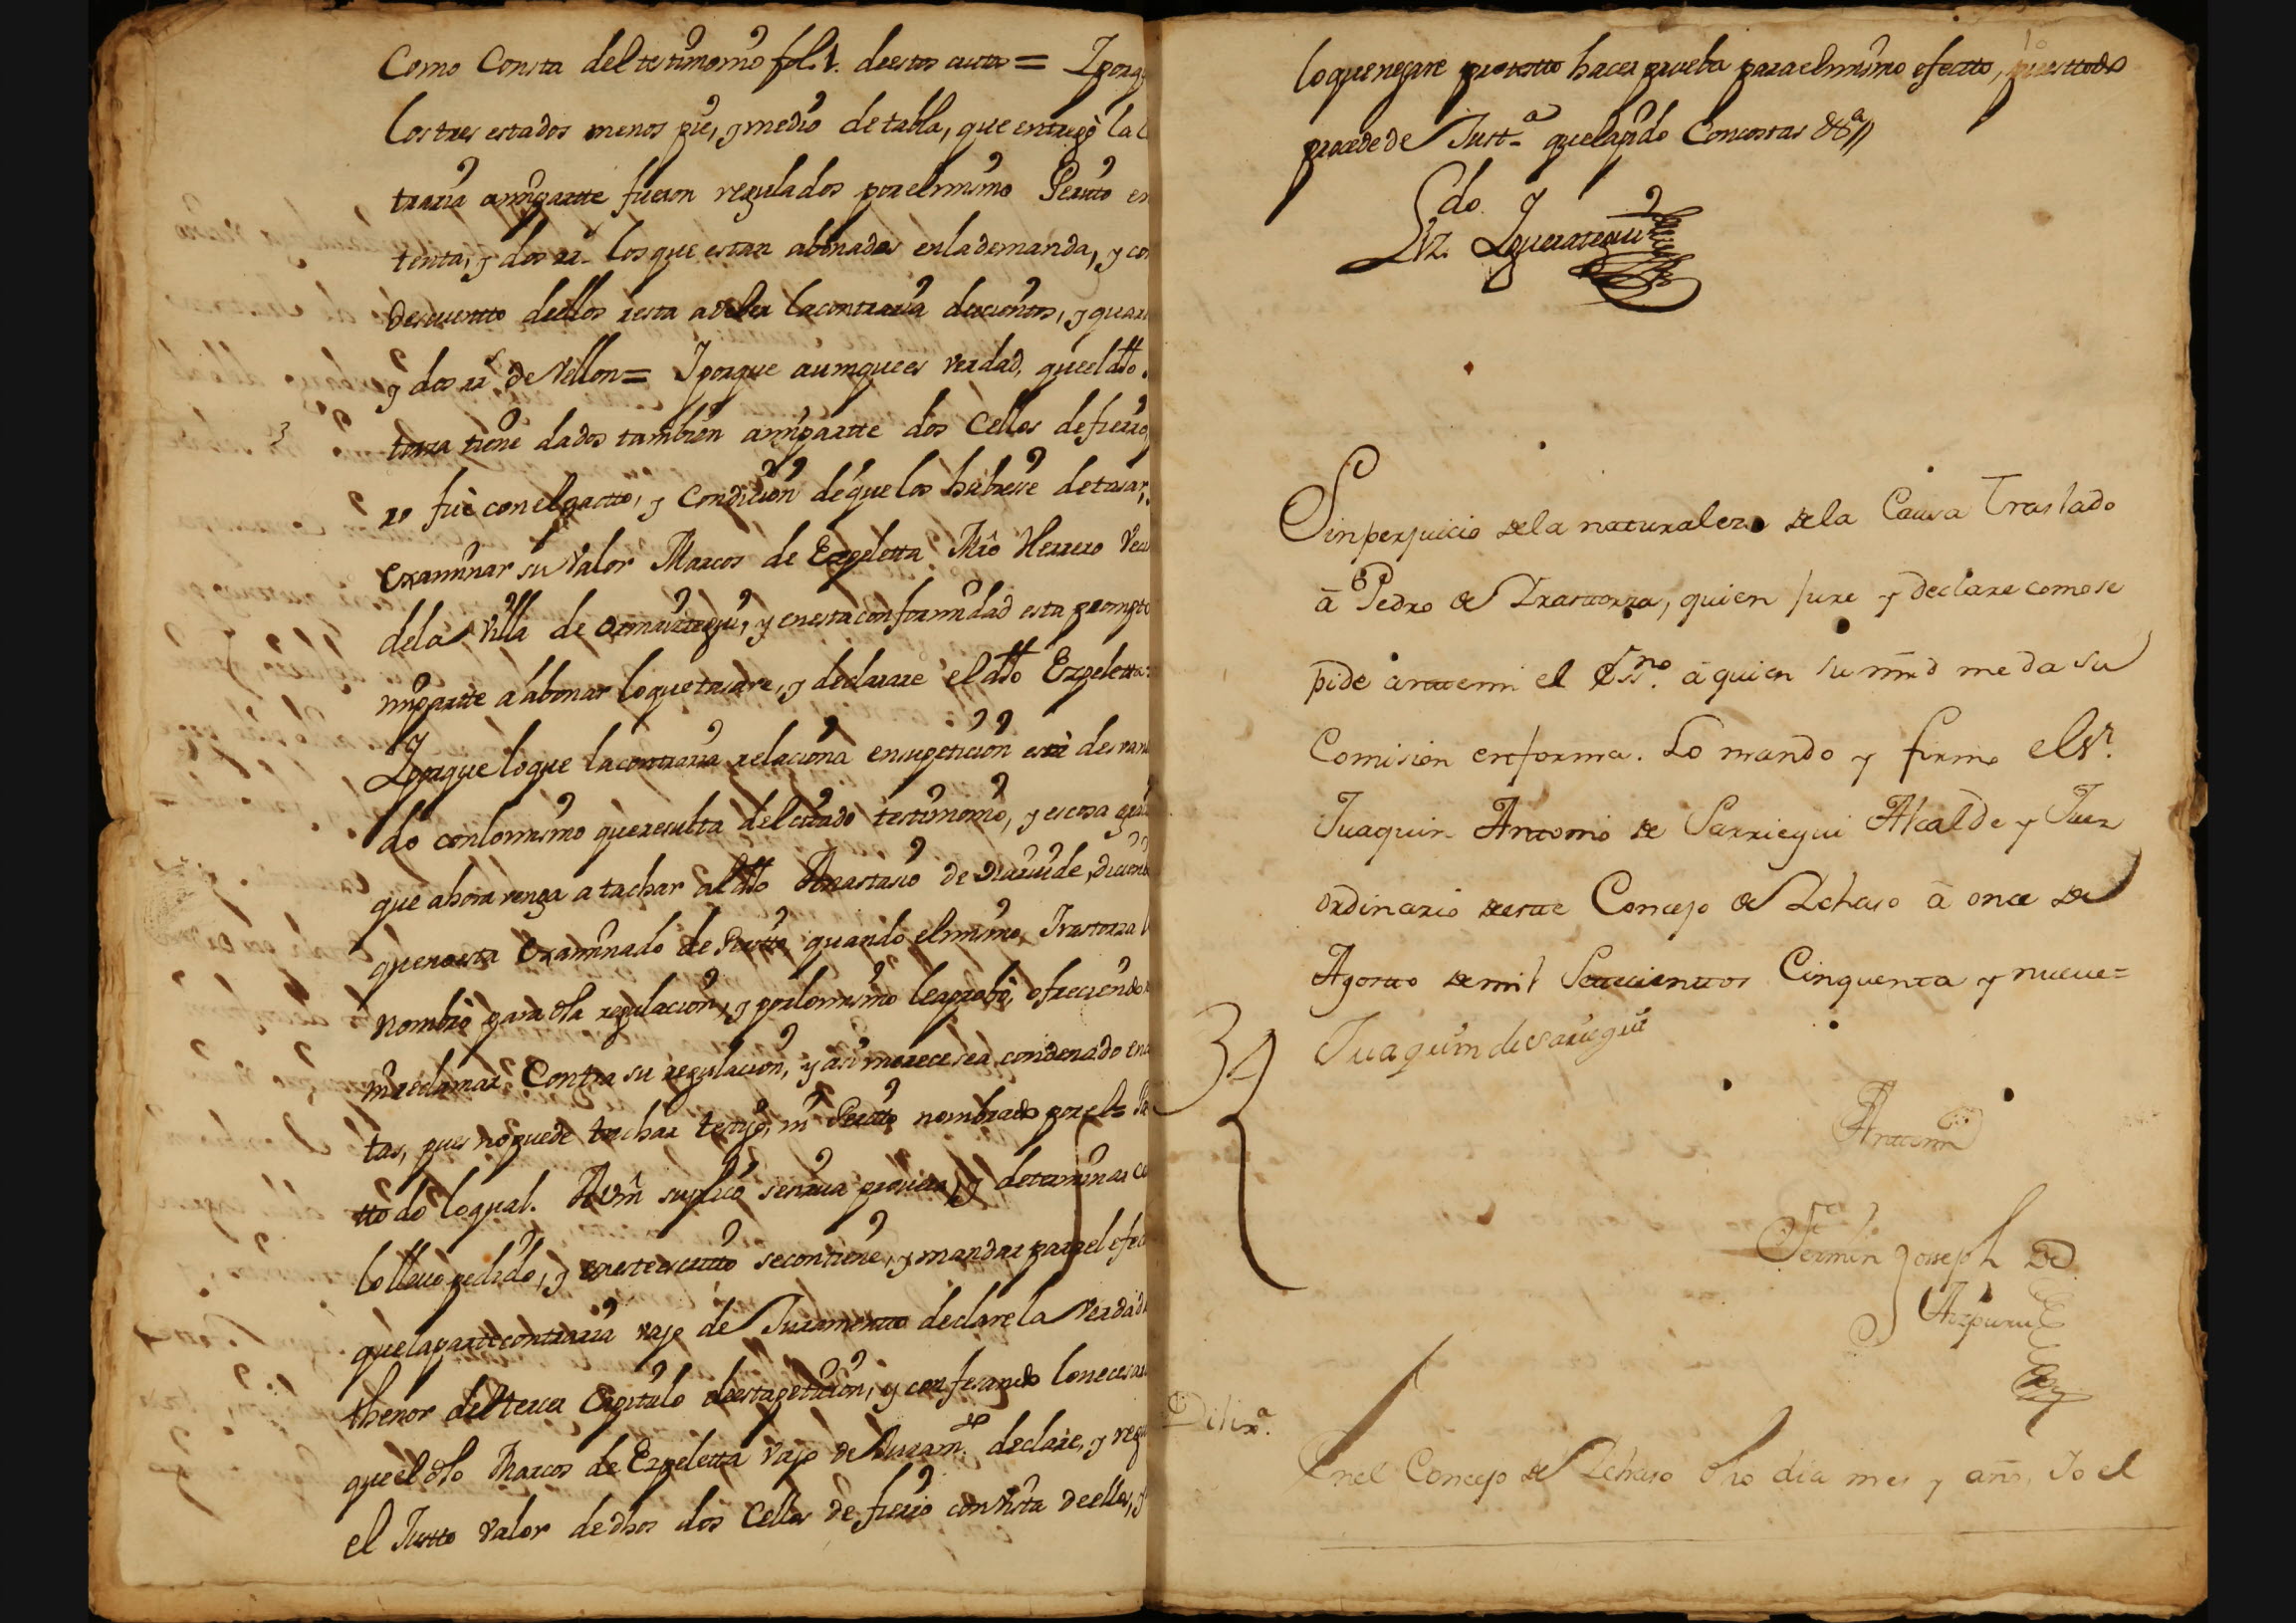 Como Consta del testimonio fol. 1. de estos autos = Y porq
los tres estados menos pie, y medio de tabla, que entregò la
traria a mi partte fueron regulados por el mismo Peritto en
tenta, y dos rr.s los que estan abonados en la demanda, y con
descuentto de ellos resta a deber la contraria duscientos, y quar
y dos rr.s de Vellon = Y porque aunque es verdad, que el dtto
torza tiene dados tambien a mi partte dos Cellos de fierro
ro fuè con el pactto, y Condicion de que los hubiese de tasar,
examinar su Valor Marcos de Ezpeletta Mrô Herrero Vecì
de la Villa de Ormaiztegui, y en esta conformidad esta prompto
mi partte a abonar lo que tasare, y declarare el dtto Ezpeletta
Y porque lo que la contraria relaciona en su peticion està desvan
do con lo mismo que resulta del citado testimonio, y es cosa
que ahora venga a tachar al dtto Anastasio de diciendo
que no esta Examinado de Peritto quando el mismo Irastorza
nombrò para dha regulacion, y por lo mismo le aprobò, ofreciendo
ni reclamar Contra su regulacion, y asi merece sea condenado en
tas, pues no puede tachar testigo, ni Peritto nombrado por el=
ttodo lo qual. A Vm suplico se sirva proveer, y determinar
lo llevo pedido, y en este escritto se contiene, y mandar para el efec
que la parte contraria vajo de Juramentto declare la Verdad
thenor del tercer Capitulo de esta peticion, y confesando lo necesar
que el dho Marcos de Ezpeletta vajo de Juram.to declare, y regu
el Justto valor de dhos dos Cellos de fierro con vista de ellos,
lo que negare protestto hacer prueba para el mismo efectto, pues ttodo
procede de Justt.a que la pido Con costas &a
Ldo Y
Liz. Yguerategui
Sin perjuicio de la naturaleza de la Causa Traslado
â Pedro de Irastorza, quien jure y declare como se
pide ante mi el Ess.no â quien su mrd me da su
Comision en forma. Lo mando y firmo el S.r
Juaquin Antonio de Sarriegui Alcalde y Juez
ordinario de este Concejo de Ichaso â once de
Agosto de mil Settecientos Cinquenta y nueve=
Juaquin de Sariegui
Ante mi
Fermin Joseph de
Aizpuru
Dilix.a
En el Concejo de Ichaso dho dia mes y año, Yo el